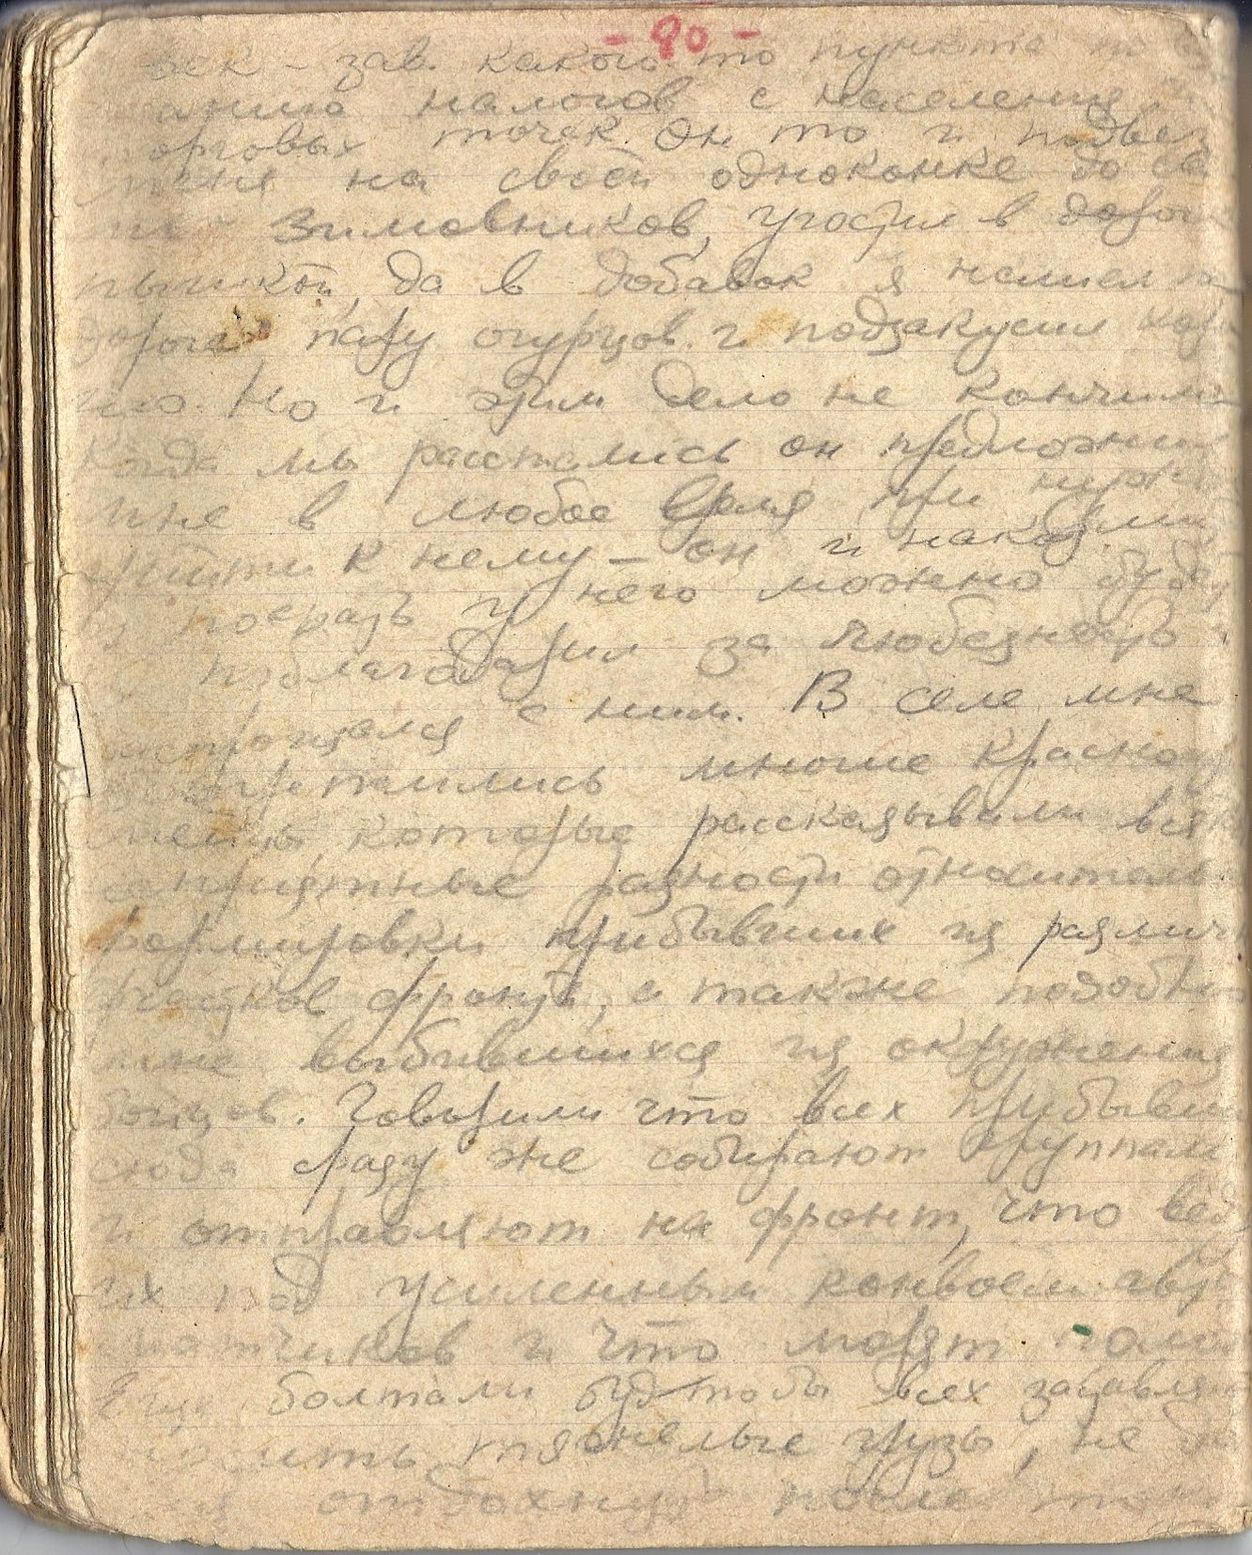 - 90 -
век - зав. какого то пункта
налогов с населения
торговых точек. Он то и подвез
меня на своей одноконке до
Зимовников, угостил в дороге
пышкой, да в добавок я нашел
дороге пару огурцов и подзакусил
Но и этим дело не кончилось
Когда мы расстались он предложил
мне в любое время при нужде
прийти к нему - он и накормит
и поспать у него можно будет
поблагодарил за любезность
распрощался с ним. В селе мне
встретились многие красноар
мейцы, которые рассказывали
неприятные разности относительно
формировки прибывших из различ
участков фронта, а также подобных
мне выбившихся из окружения
бойцов. Говорили что всех прибывших
сюда сразу же собирают группами
и отправляют на фронт, что ведут
их под усиленным конвоем авто
матчиков и что морят
Еще болтали буд-то бы всех заставляют
носить тяжелые грузы, не
отдохнуть после